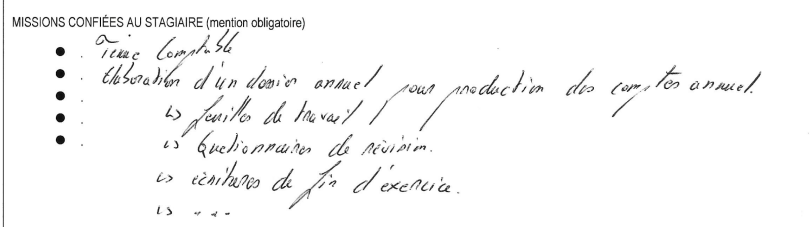 MISSIONS CONFIÉES AU STAGIAIRE (mention obligatoire)
● . Tenue Comptable
● . Elaboration d'un dossier annuel pour production des comptes annuel.
● . ↳ feuilles de travail /
● . ↳ Questionnaires de révision.
● . ↳ écritures de fin d'exercice.
↳ ...